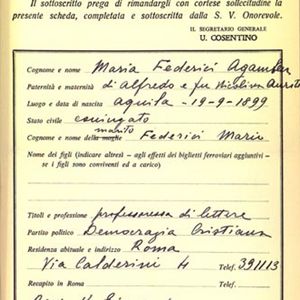 Il sottoscritto prega di rimandargli con cortese sollecitudine la
presente scheda, completata e sottoscritta dalla S. V. Onorevole.
IL SEGRETARIO GENERALE
U. COSENTINO
Cognome e nome Maria Federici Agamben
Paternità e maternità di Alfredo e fu Nicolina
Luogo e data di nascita Aquila - 19-9-1899
Stato civile coniugato
marito
Cognome e nome della moglie Federici Mario
Nome dei figli (indicare altresì - agli effetti dei biglietti ferroviari aggiuntivi -
se i figli sono conviventi ed a carico)
Titoli e professione professoressa di lettere
Partito politico Democrazia Cristiana
Residenza abituale e indirizzo Roma
Via Calderini 4 Telef. 391113
Recapito in Roma Telef.